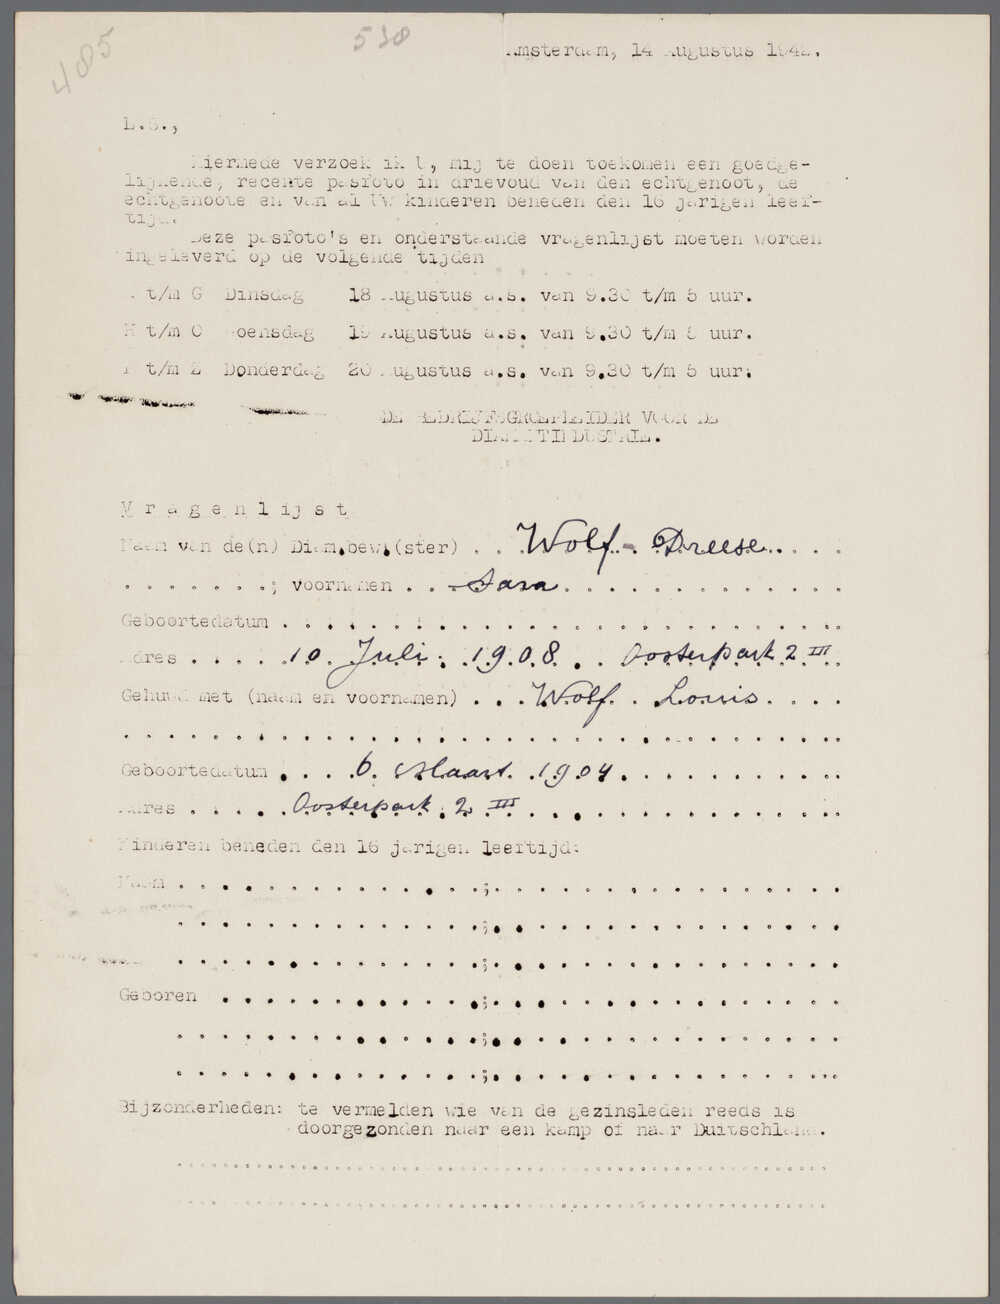 485
538
Amsterdam, 14 Augustus 1942.
L.S.,
Hiermede verzoek ik U, mij te doen toekomen een goedge-
lijkende, recente pasfoto in drievoud van den echtgenoot, de
echtgenoote en van al Uw kinderen beneden den 16 jarigen leef-
tijd.
Deze pasfoto's en onderstaande vragenlijst moeten worden
ingeleverd op de volgende tijden
t/m G Dinsdag 18 Augustus a.s. van 9.30 t/m 5 uur.
H t/m O Woensdag 19 Augustus a.s. van 9.30 t/m 5 uur.
P t/m Z Donderdag 20 Augustus a.s. van 9.30 t/m 5 uur.
DE BEDRIJFSGROEPLEIDER VOOR DE
DIAMANTINDUSTRIE.
Vragenlijst
Naam van de(n) Diam.bew.(ster) . . Wolf - Dreese . . . .
. . . . . . . ; voornamen . . . Sara . . . . . . . . . . . . .
Geboortedatum . . . . . . . . . . . . . . . . . . . . . . . . .
Adres . . . . . 10 Juli 1908 . . Oosterpark 2 III
Gehuwd met (naam en voornamen) . . . Wolf . Louis . . . .
. . . . . . . . . . . . . . . . . . . . . . . . . . . . . . . .
Geboortedatum . . . . 6 Maart 1904 . . . . . . . . . .
Adres . . . . . Oosterpark 2 III . . . . . . . . . . . . . .
Kinderen beneden den 16 jarigen leeftijd:
Naam . . . . . . . . . . . . . . ; . . . . . . . . . . . . . . .
. . . . . . . . . . . . . . ; . . . . . . . . . . . . . . .
. . . . . . . . . . . . . . ; . . . . . . . . . . . . . . .
Geboren . . . . . . . . . . . . ; . . . . . . . . . . . . . . .
. . . . . . . . . . . . . . ; . . . . . . . . . . . . . . .
. . . . . . . . . . . . . . ; . . . . . . . . . . . . . . .
Bijzonderheden: te vermelden wie van de gezinsleden reeds is
doorgezonden naar een kamp of naar Duitschland.
. . . . . . . . . . . . . . . . . . . . . . . . . . . . . .
. . . . . . . . . . . . . . . . . . . . . . . . . . . . . .